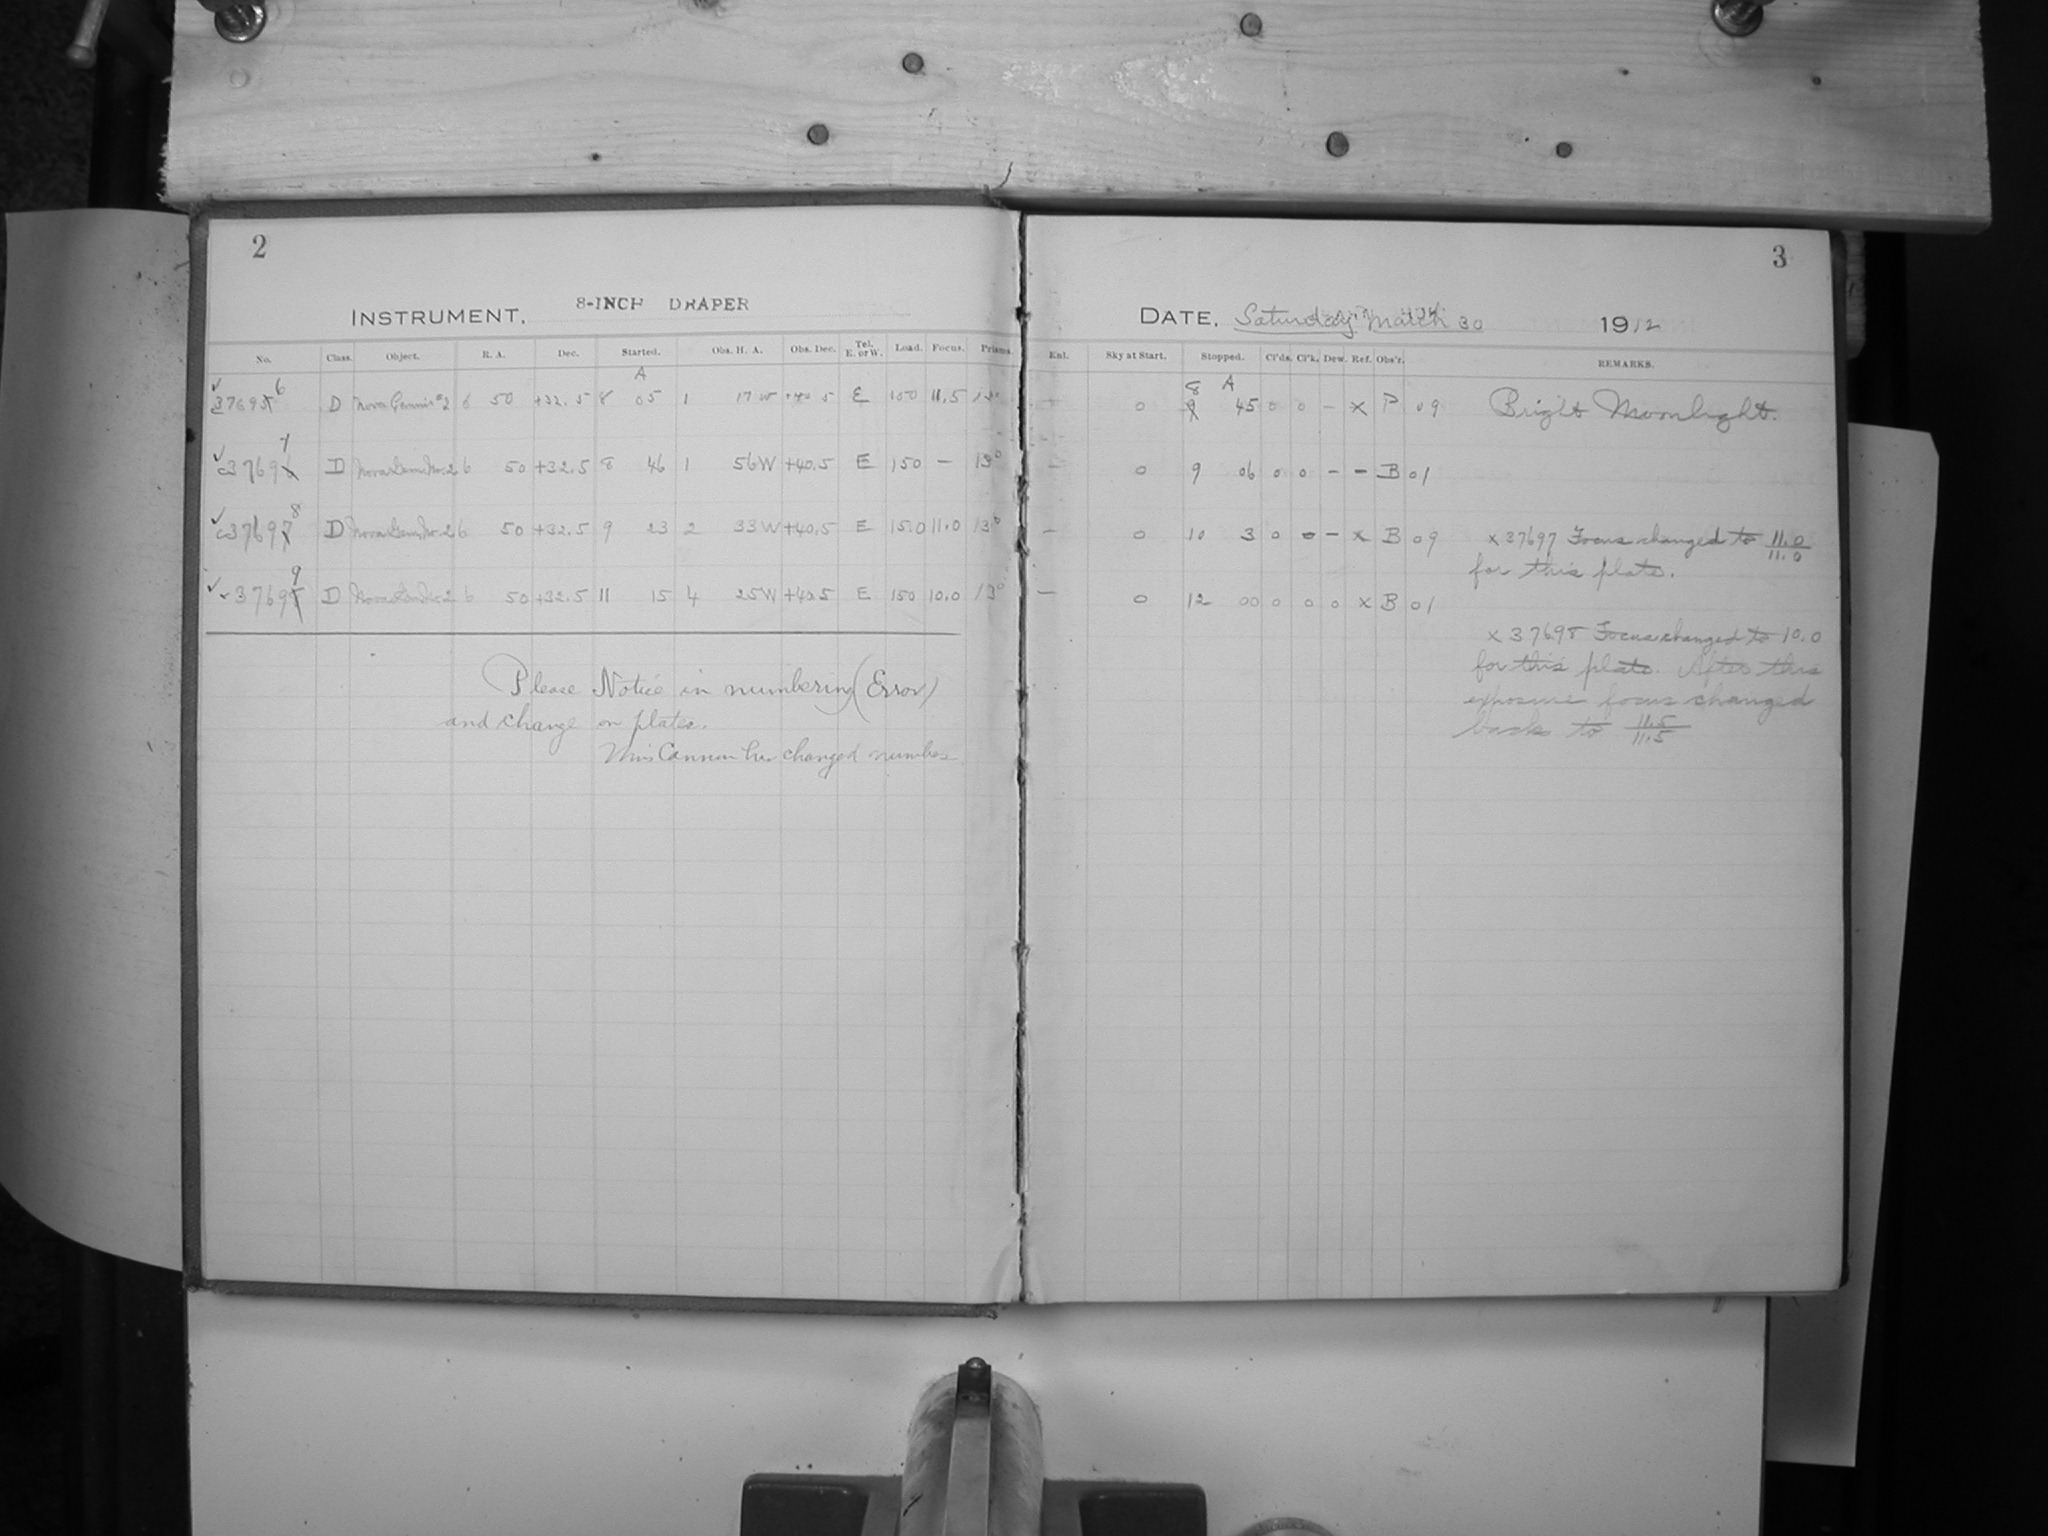 2
INSTRUMENT. 8-INCH DRAPER
No. Class. Object. R. A. Dec. Started. Obs. H. A. Obs. Dec. Tel. E. or W. Load. Focus. Prisms.
A
37695 6 D Nova Gemin #2 6 50 +32.5 8 05 1 17 W +40 5 E 150 11.5 13°
3769 7 D Nova Gem No. 2 6 50 +32.5 8 46 1 56W +40.5 E 150 – 13°
37697 8 D Nova Gem No. 2 6 50 +32.5 9 23 2 33W +40.5 E 150 11.0 13°
37698 9 D Nova Gem No. 2 6 50 +32.5 11 15 4 25W +40.5 E 150 10.0 13°
Please Notice in numbering (Error)
and change on plates.
Miss Cannon has changed numbers
3
DATE, Saturday March 30 1912
Enl. Sky at Start. Stopped. Cl'ds. Cl'k. Dew. Ref. Obs'r. REMARKS.
8 A
– 0 9 45 0 0 – x P 09 Bright Moonlight.
– 0 9 06 0 0 – – B 01
– 0 10 3 0 0 – x B 09 x 37697 Focus changed to 11.0/11.0
for this plate.
– 0 12 00 0 0 0 x B 01
x 37698 Focus changed to 10.0
for this plate. After this
exposure focus changed
back to 11.5/11.5